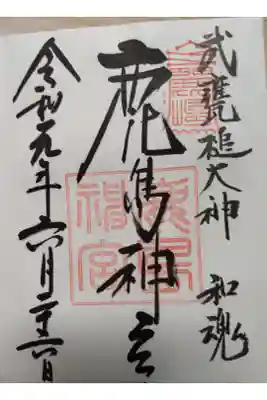 武甕槌大神 和魂
鹿島神宮
鹿島
神宮
令和元年六月二十六日